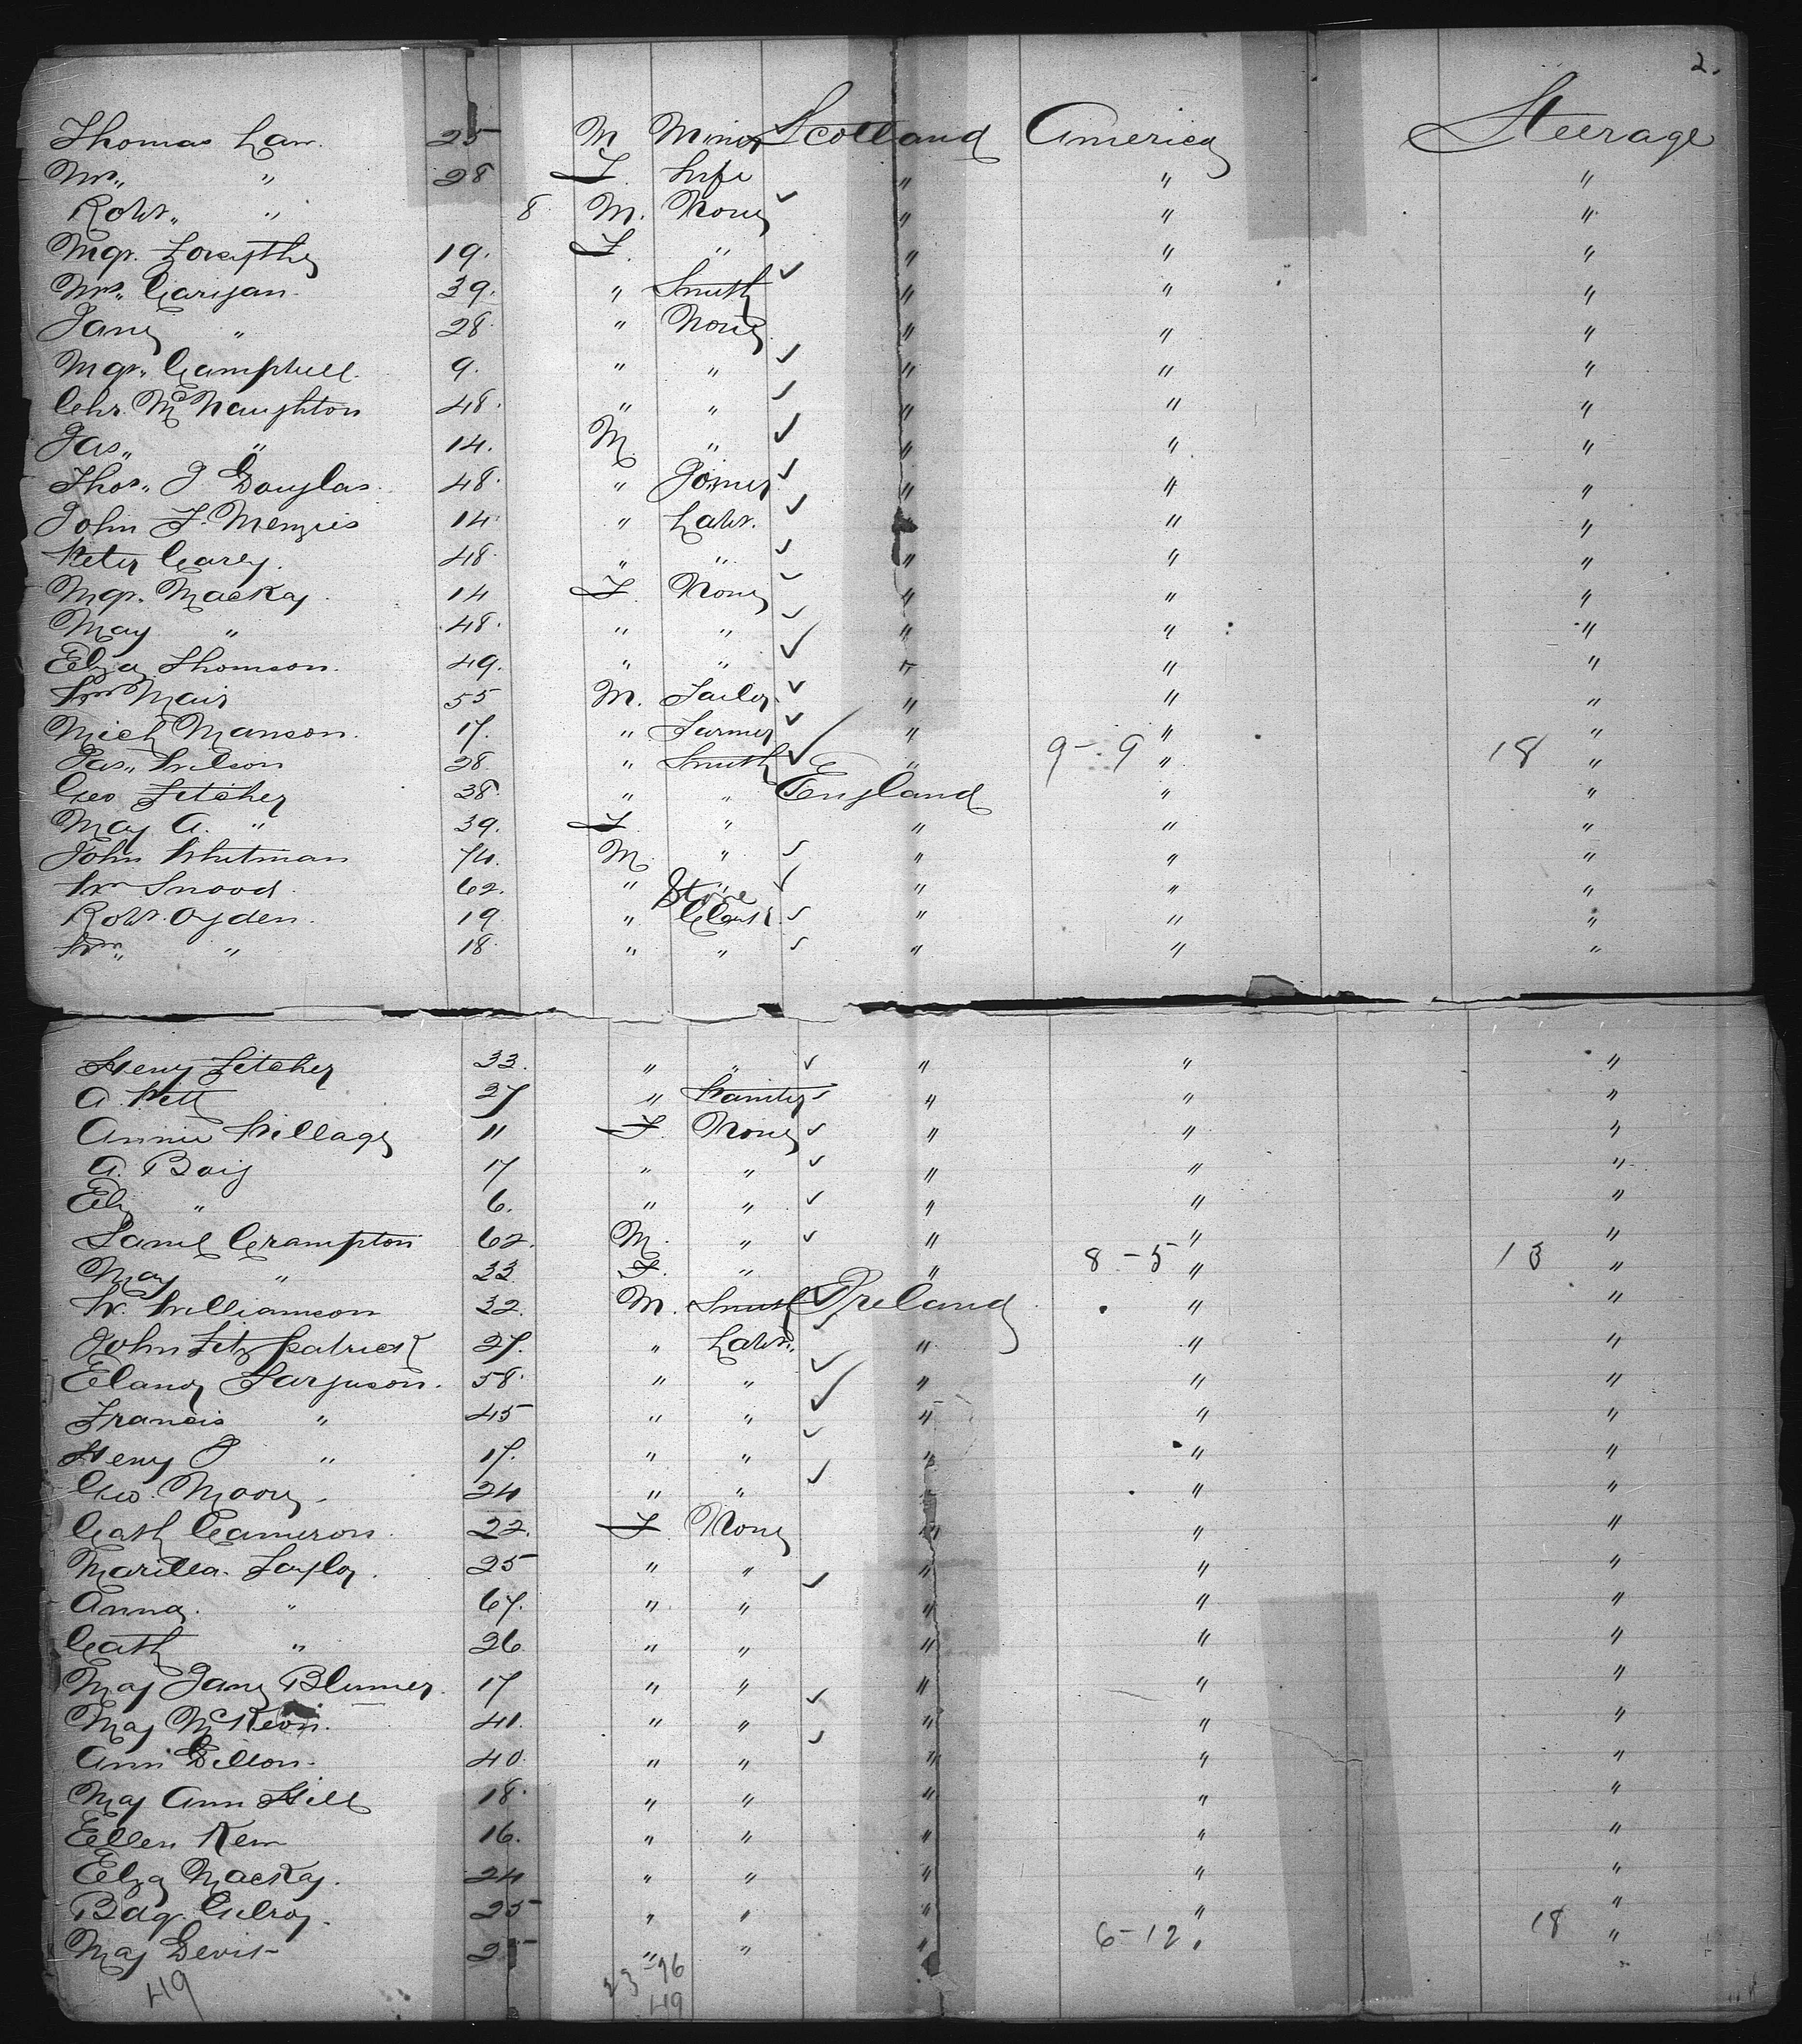 2.
Thomas Law 25 M Miner Scotland America Steerage
Mrs " 28 F. Wife " " "
Robt. " 8 M. None " " "
Mgr. Forsythe 19. F. " " " "
Mrs. Carigan 39. " Smith " " "
Jane " 28. " None " " "
Mgr. Campbell 9. " " " " "
Chr. McNaughton 48. " " " " "
Jas. " 14. M " " " "
Thos. J Douglas 48. " Joiner " " "
John F. Menzies 14. " Labr. " " "
Peter Carey. 48. " " " " "
Mgr. Mackay 14 F. None " " "
May " 48. " " " " "
Eliza Thomson. 49. " " " " "
Wm Mair 55 M. Tailor " " "
Mich Manson. 17. " Farmer " " "
Jas. Wilson 28. " Smith " 9-9 " 18 "
Geo Fitcher 38. " " England " "
May A. " 39. F " " " "
John Whitman 74. M " " " "
Wm Snood. 62. " " " " "
Robt. Ogden. 19 " Store Clerk " " "
Wm. " 18. " " " " "
Heny Fitcher 33. " " " " "
A. Pett 27 " Painter " " "
Annie Willage 11 F. None " " "
A. Boig 17 " " " " "
Eliz " 6. " " " " "
Saml Crampton 62. M. " " " "
May " 33 F. " " 8-5 " 13 "
W. Williamson 32. M. Smith Ireland " "
John Fitzpatrick 27. " Labr. " " "
Eland Farguson. 58. " " " " "
Francis " 45 " " " " "
Heny J " 17. " " " " "
Geo. Moore. 24 " " " " "
Cath Cameron. 22. F None " " "
Marilla. Taylor. 25 " " " " "
Anna. " 67. " " " " "
Cath " 26. " " " " "
May Jane Blumer. 17 " " " " "
May McKeon. 41. " " " " "
Ann Dillon. 40. " " " " "
May Ann Hill 18. " " " " "
Ellen Kem 16. " " " " "
Eliza Mackay. 24 " " " " "
Bag. Gilroy. 25 " " " " "
May Devit 25 " " " 6-12 " 18 "
49 23-26
49